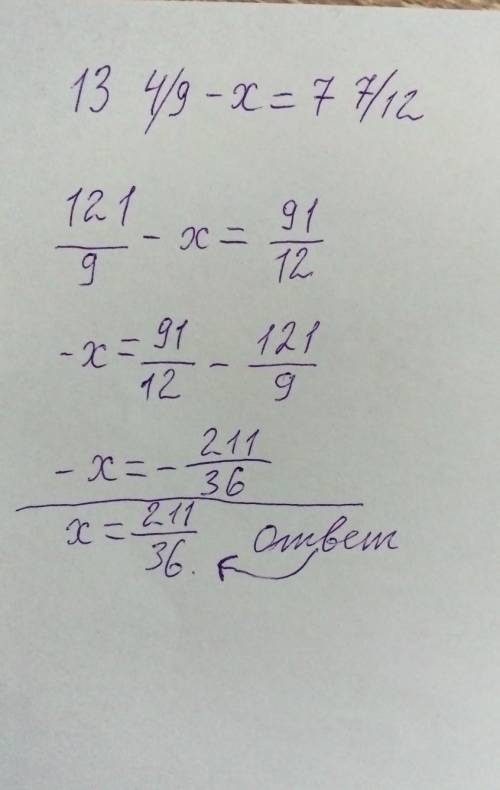 13 4/9 - x = 7 7/12
121/9 - x = 91/12
-x = 91/12 - 121/9
-x = - 211/36
x = 211/36. ответ